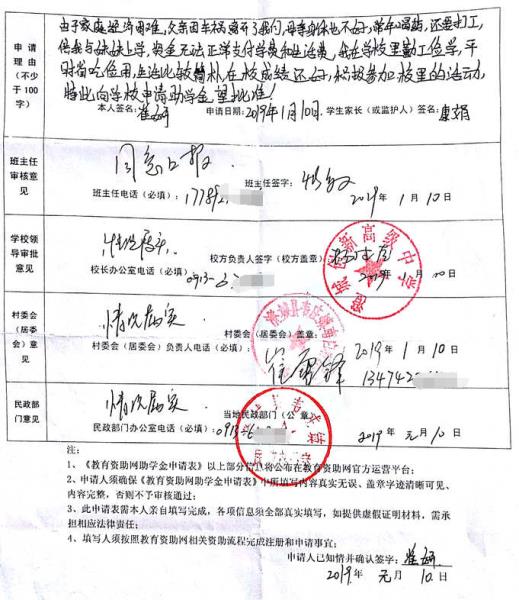 申请理由（不少于100字）
由于家庭经济困难，父亲因车祸离开了我们，母亲身体也不好，常年喝药，还要打工，
供我与妹妹上学，资金无法正常支付学费和生活费，我在学校里勤工俭学，平
时省吃俭用，生活比较简朴，在校成绩还好，积极参加校里的活动，
特此向学校申请助学金，望批准！
本人签名： 申请日期：2019年1月10日 学生家长（或监护人）签名：
班主任审核意见
同意上报
班主任签字：
班主任电话（必填）：177892
2019年1月10日
学校领导审批意见
情况属实
校方负责人签字（校方盖章）
校长办公室电话（必填）：0913-
2019年1月10日
澄城创新高级中学
村委会（居委会）意见
情况属实
村委会（居委会）盖章：
村委会（居委会）负责人电话（必填）：
2019年1月10日
134742
民政部门意见
情况属实
当地民政部门（公章）
民政部门办公室电话（必填）：0913-6
2019元月10
注：
1、《教育资助网助学金申请表》以上部分信息将公布在教育资助网官方运营平台；
2、申请人须确保《教育资助网助学金申请表》中所填写内容真实无误、盖章字迹清晰可见、
内容完整，否则不予审核通过；
3、此申请表需本人亲自填写完成，各项信息须全部真实填写，如提供虚假证明材料，需承
担相应法律责任；
4、填写人须按照教育资助网相关资助流程完成注册和申请事宜；
申请人已知情并确认签字：
2019年元月10日